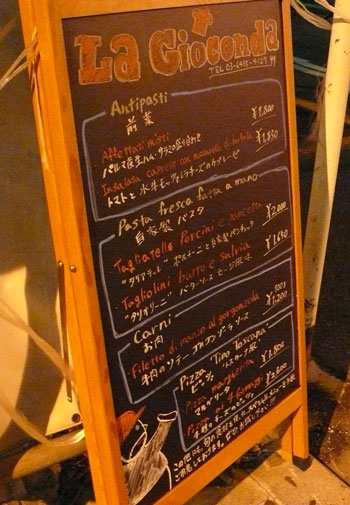 La Gioconda
TEL 03-
Antipasti
前菜
Affettati misti
¥1,800
パルマ産生ハム・サラミの盛り合わせ
Insalata caprese con mozzarella di bufala
¥1,850
トマトと水牛モッツァレラチーズのカプレーゼ
Pasta fresca fatta a mano
自家製 パスタ
Tagliatelle Porcini e pancetta
¥2,000
"タリアテッレ" ポルチーニと自家製パンチェッタ
Tagliolini burro e salvia
¥1,650
"タリオリーニ" バターソース セージ風味
Carni
お肉
Filetto di manzo al gorgonzola
牛肉のソテー ゴルゴンゾーラソース
Pizza Tipo Toscana
ピッツァ トスカーナ風
Pizza margherita
マルゲリータ
Pizza ai 4 formaggi
¥2,600